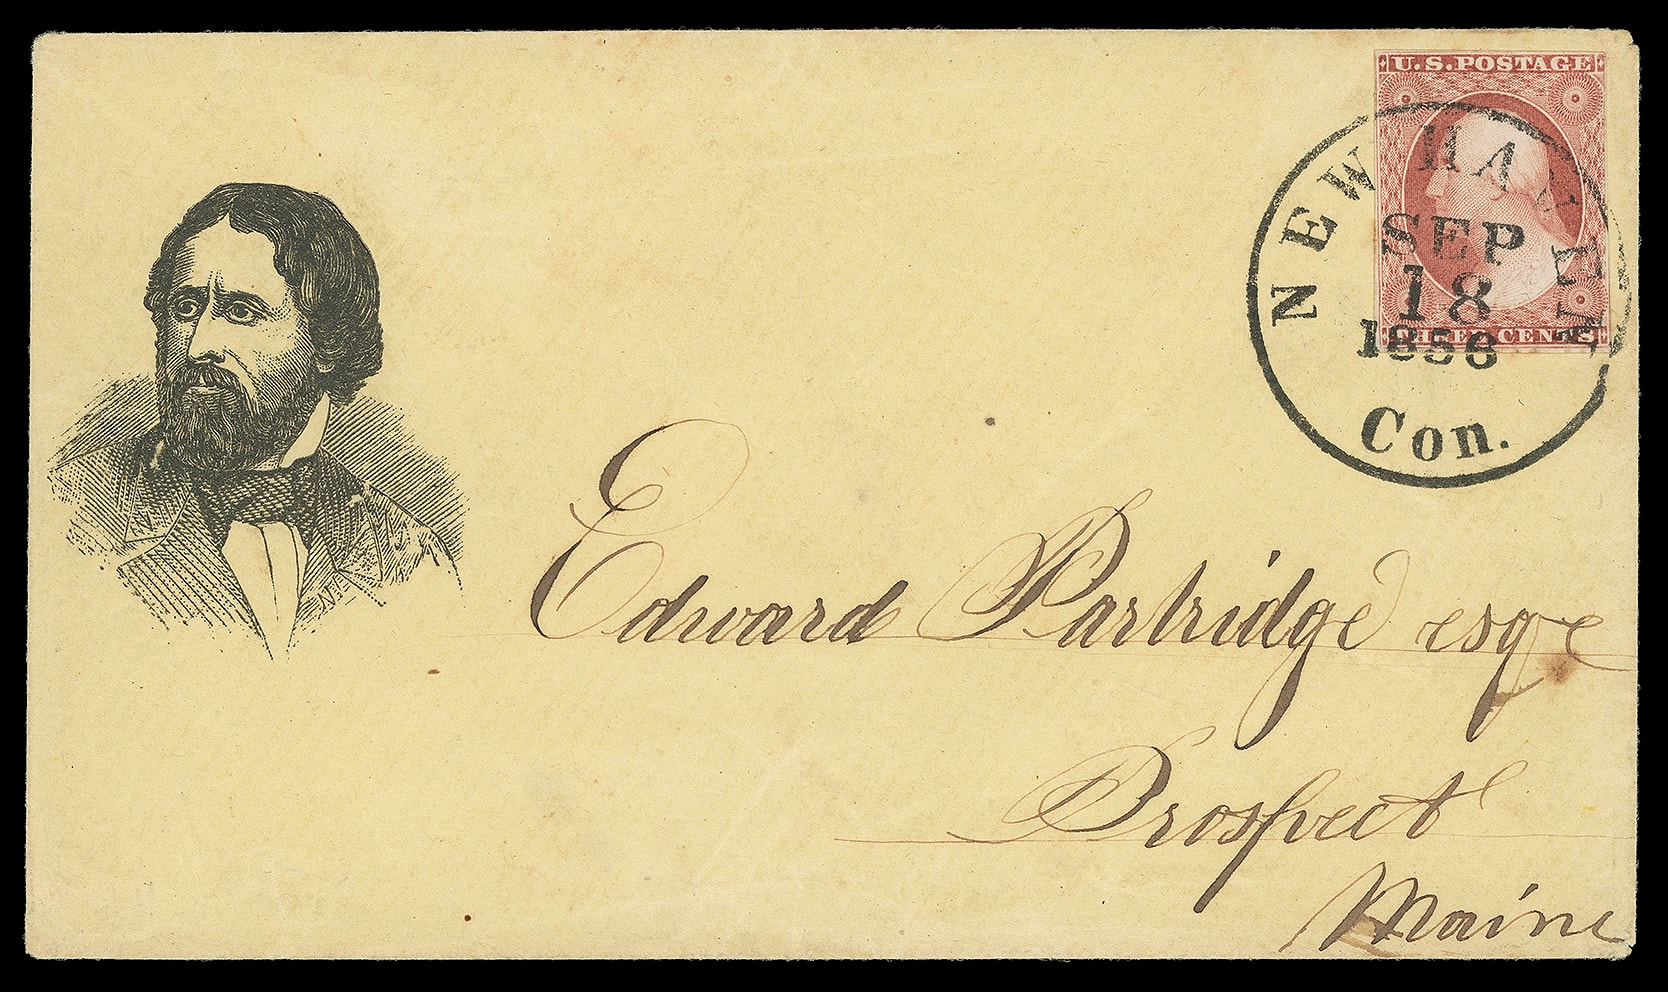 U.S. POSTAGE
THREE CENTS
NEW HAVEN
SEP
18
1856
Con.
Edward Partridge esqe
Prospect
Maine